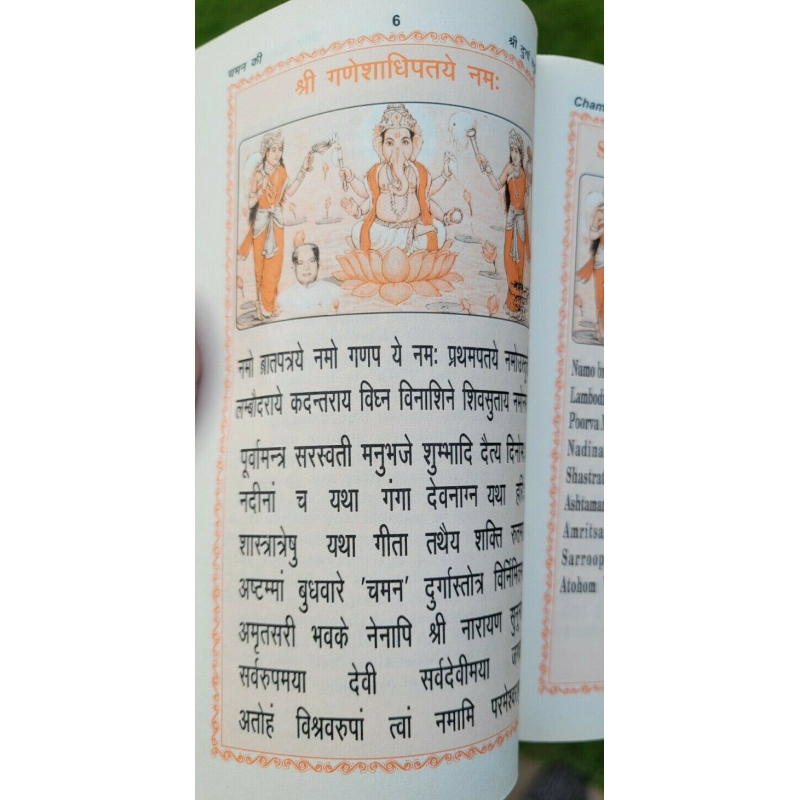 6
चमन की
श्री दुर्गा
श्री गणेशाधिपतये नमः
नमो ब्रातपत्रये नमो गणप ये नमः प्रथमपतये
लम्बौदराये कदन्तराय विघ्न विनाशिने शिवसुताय
पूर्वामन्त्र सरस्वती मनुभजे शुम्भादि दैत्य
नदीनां च यथा गंगा देवनाग्न यथा
शास्त्रात्रेषु यथा गीता तथैय शक्ति
अष्टम्मां बुधवारे 'चमन' दुर्गास्तोत्र
अमृतसरी भवके नेनापि श्री नारायण
सर्वरुपमया देवी सर्वदेवीमया
अतोहं विश्रवरुपां त्वां नमामि
Cham
S
Namo
Lambod
Poorva
Nadina
Shastrat
Ashtamar
Amritsa
Sarroop
Atohom